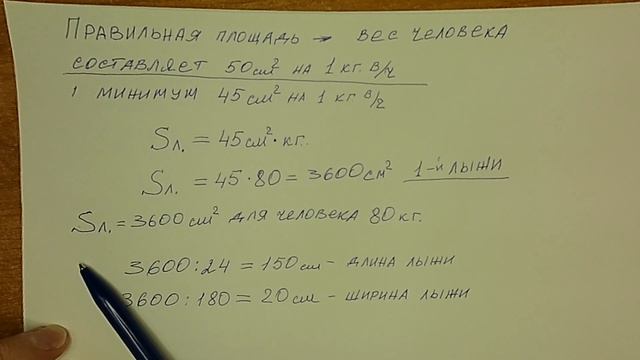 ПРАВИЛЬНАЯ ПЛОЩАДЬ → ВЕС ЧЕЛОВЕКА
СОСТАВЛЯЕТ 50 см² НА 1 КГ. В/Ч
МИНИМУМ 45 см² НА 1 КГ В/Ч
Sл. = 45 см² · КГ.
Sл. = 45 · 80 = 3600 см² 1-й ЛЫЖИ
Sл. = 3600 см² ДЛЯ ЧЕЛОВЕКА 80 КГ.
3600 : 24 = 150 см - ДЛИНА ЛЫЖИ
3600 : 180 = 20 см - ШИРИНА ЛЫЖИ